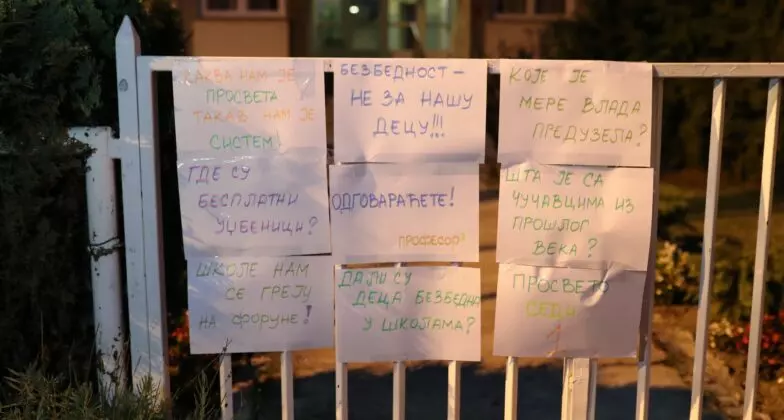 КАКВА НАМ ЈЕ
ПРОСВЕТА
ТАКАВ НАМ ЈЕ
СИСТЕМ!
БЕЗБЕДНОСТ –
НЕ ЗА НАШУ
ДЕЦУ!!!
КОЈЕ ЈЕ
МЕРЕ ВЛАДА
ПРЕДУЗЕЛА?
ГДЕ СУ
БЕСПЛАТНИ
УЏБЕНИЦИ?
ОДГОВАРАЋЕТЕ!
ШТА ЈЕ СА
ЧУЧАВЦИМА ИЗ
ПРОШЛОГ
ВЕКА?
ШКОЛЕ НАМ
СЕ ГРЕЈУ
НА ФОРУНЕ!
ДА ЛИ СУ
ДЕЦА БЕЗБЕДНА
У ШКОЛАМА?
ПРОСВЕТО
СЕДИ
1